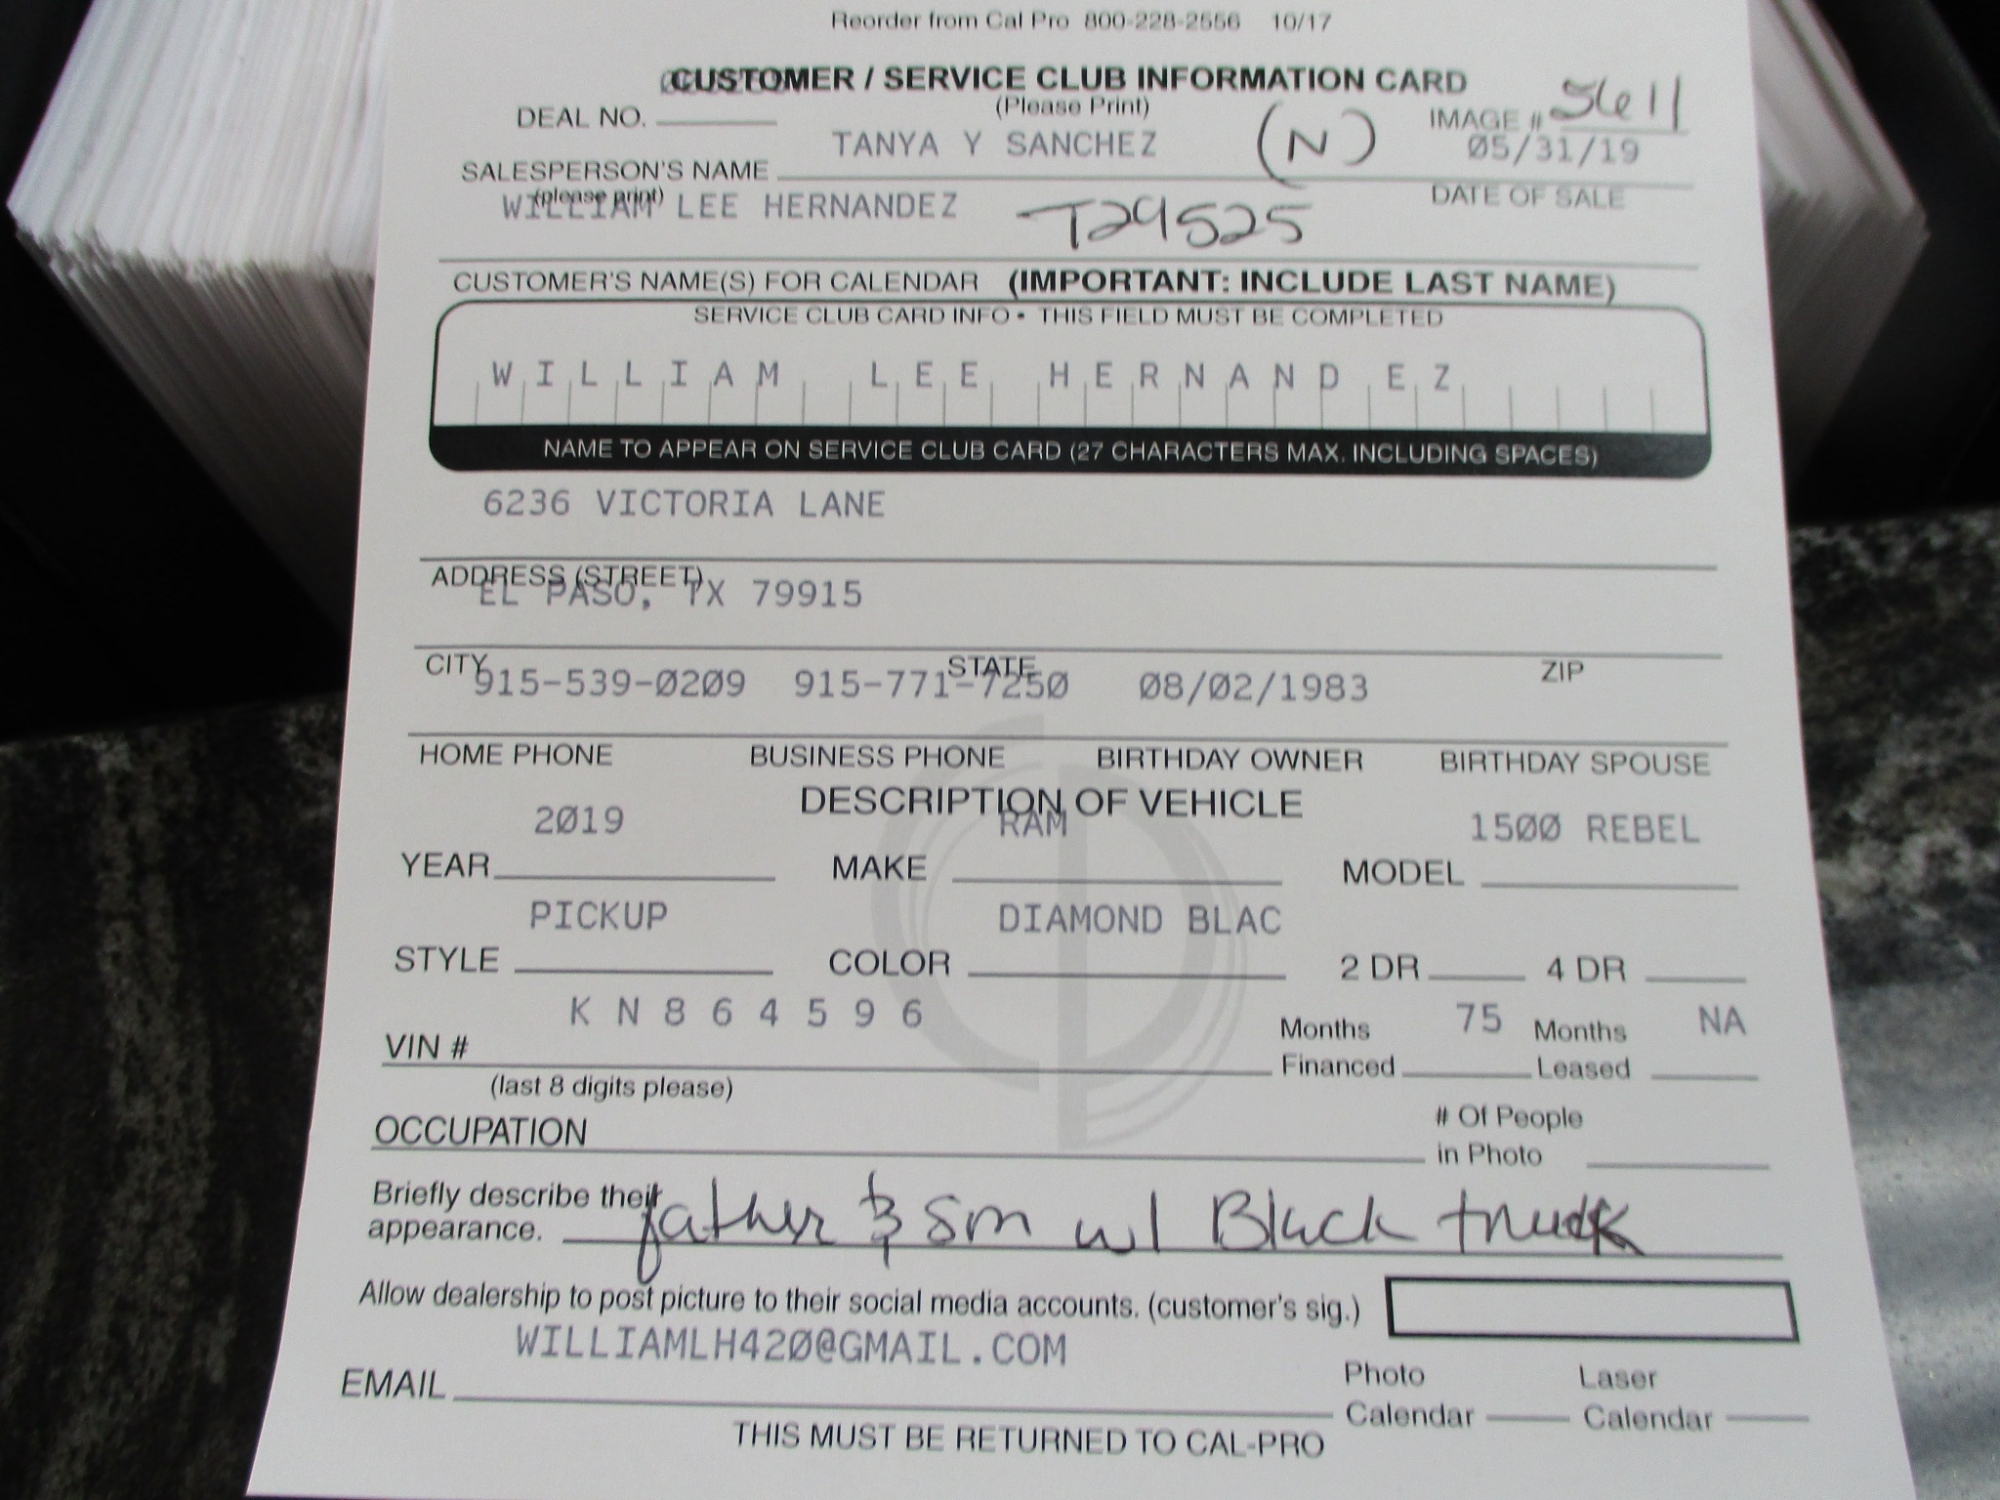 Reorder from Cal Pro 800-228-2556 10/17
CUSTOMER / SERVICE CLUB INFORMATION CARD
(Please Print)
DEAL NO.
IMAGE # 5611
TANYA Y SANCHEZ (N) 05/31/19
SALESPERSON'S NAME
(please print)
DATE OF SALE
WILLIAM LEE HERNANDEZ T29525
CUSTOMER'S NAME(S) FOR CALENDAR (IMPORTANT: INCLUDE LAST NAME)
SERVICE CLUB CARD INFO • THIS FIELD MUST BE COMPLETED
WILLIAM LEE HERNANDEZ
NAME TO APPEAR ON SERVICE CLUB CARD (27 CHARACTERS MAX. INCLUDING SPACES)
6236 VICTORIA LANE
ADDRESS (STREET)
EL PASO, TX 79915
CITY STATE ZIP
915-539-0209 915-771-7250 08/02/1983
HOME PHONE BUSINESS PHONE BIRTHDAY OWNER BIRTHDAY SPOUSE
DESCRIPTION OF VEHICLE
2019 RAM 1500 REBEL
YEAR MAKE MODEL
PICKUP DIAMOND BLAC
STYLE COLOR 2 DR 4 DR
KN864596 75 NA
VIN # Months Financed Months Leased
(last 8 digits please)
OCCUPATION # Of People in Photo
Briefly describe their appearance. father & son w/ Black truck
Allow dealership to post picture to their social media accounts. (customer's sig.)
WILLIAMLH420@GMAIL.COM
EMAIL Photo Calendar Laser Calendar
THIS MUST BE RETURNED TO CAL-PRO